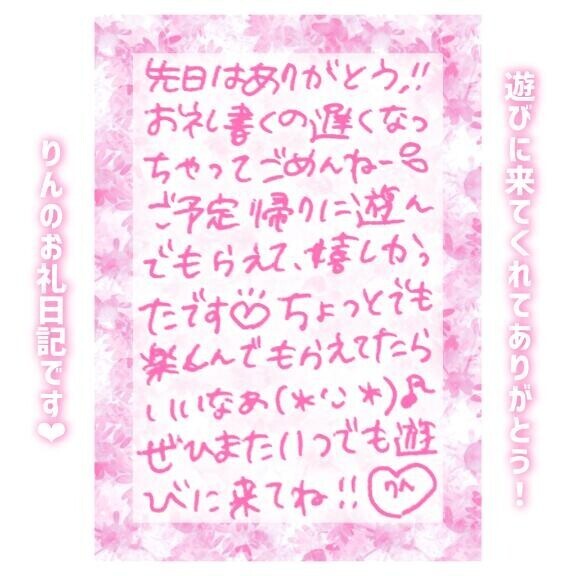 遊びに来てくれてありがとう！
先日はありがとう!!
お礼書くの遅くなっ
ちゃってごめんねー
ご予定帰りに遊ん
でもらえて、嬉しかっ
たです♡ ちょっとでも
楽しんでもらえてたら
いいなぁ(*'ᴗ'*)♪
ぜひまたいつでも遊
びに来てね!! りん
りんのお礼日記です❤